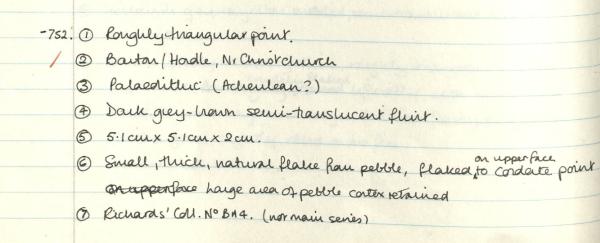 -752. ① Roughly triangular point.
② Barton/Hordle, Nr Christchurch
③ Palaeolithic (Acheulean?)
④ Dark grey-brown semi-translucent flint.
⑤ 5.1cm x 5.1cm x 2cm.
⑥ Small, thick, natural flake from pebble, flaked on upper face to cordate point
on upper face Large area of pebble cortex retained
⑦ Richards' Coll. No BH4. (not main series)